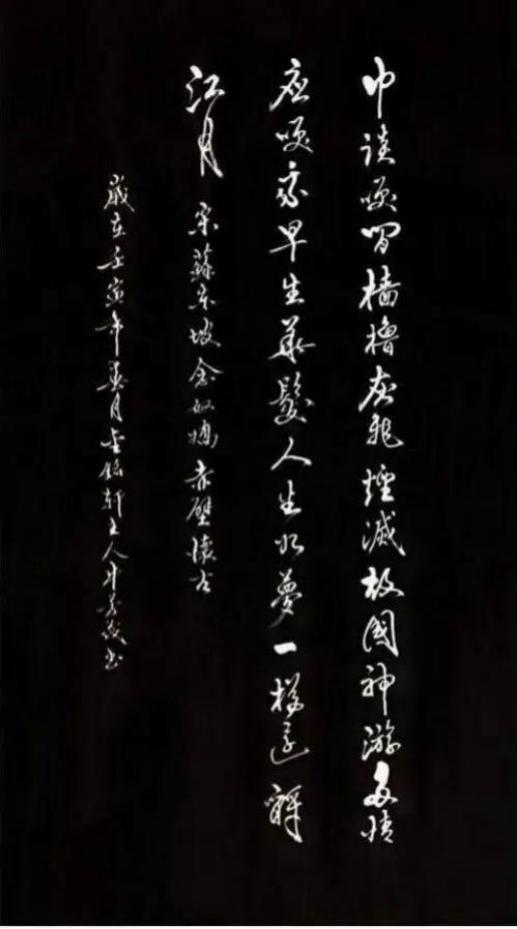 巾談咲間檣櫓灰飛煙滅故國神游多情
應咲我早生華髮人生如夢一樽還酹
江月 宋蘇東坡念奴嬌赤壁懷古
歲在壬寅年 月 軒主人 書